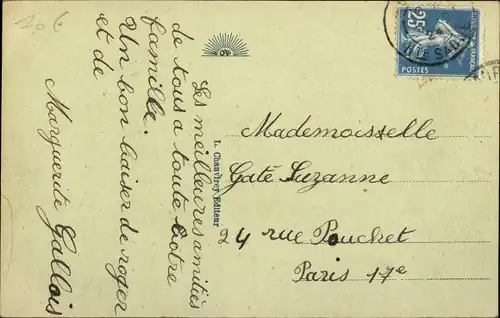 20€
Les meilleures amitiés
de tous a toute votre
famille.
Un bon baiser de roger
et de
Marguerite Gallois
L. Chauvrey Editeur
25c
POSTES
Mademoisselle
Gaté Suzanne
24 rue Pouchet
Paris 17e